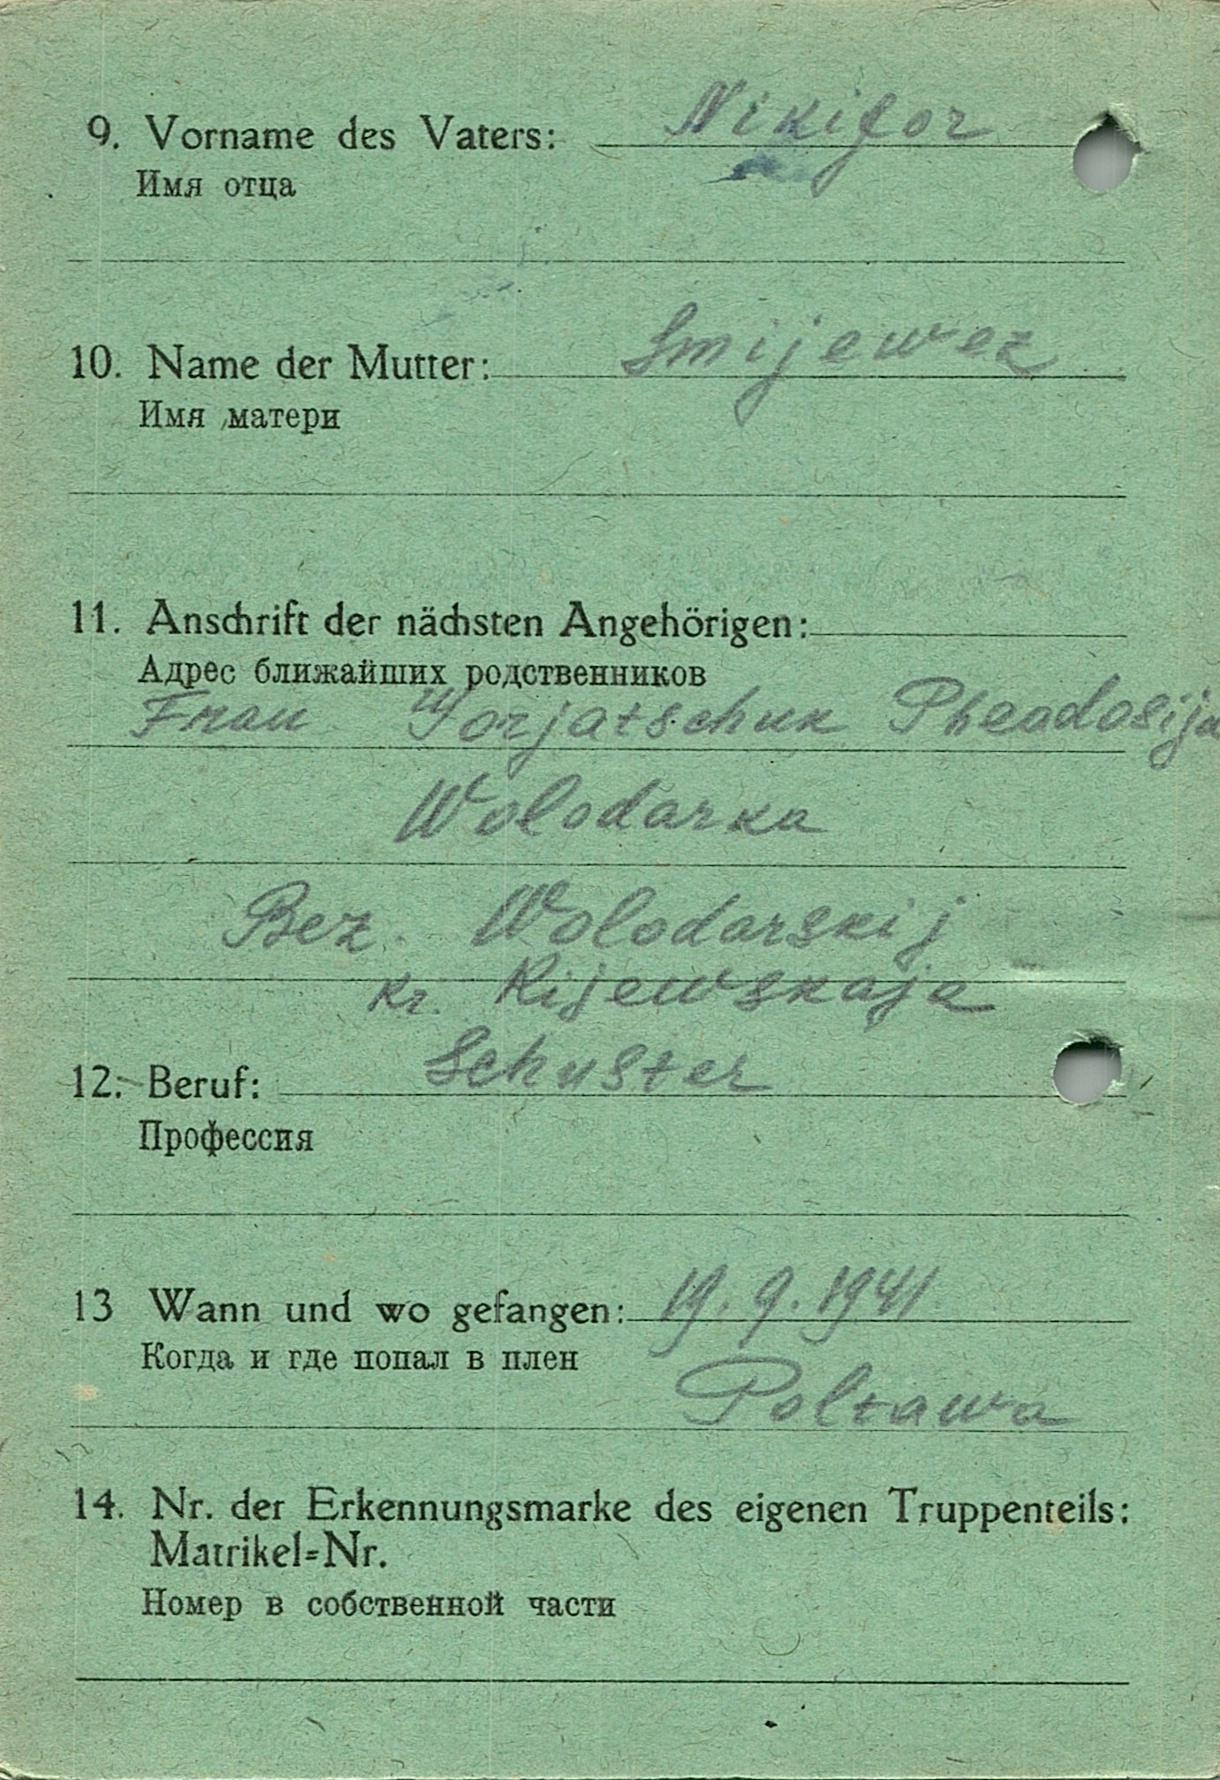 9. Vorname des Vaters: Nikifor
Имя отца
10. Name der Mutter: Smijewez
Имя матери
11. Anschrift der nächsten Angehörigen:
Адрес ближайших родственников
Frau Pheodosija
Wolodarka
Bez. Wolodarskij
Kr. Kijewskaja
12. Beruf: Schuster
Профессия
13 Wann und wo gefangen: 19.9.1941
Когда и где попал в плен
Poltawa
14. Nr. der Erkennungsmarke des eigenen Truppenteils:
Matrikel=Nr.
Номер в собственной части